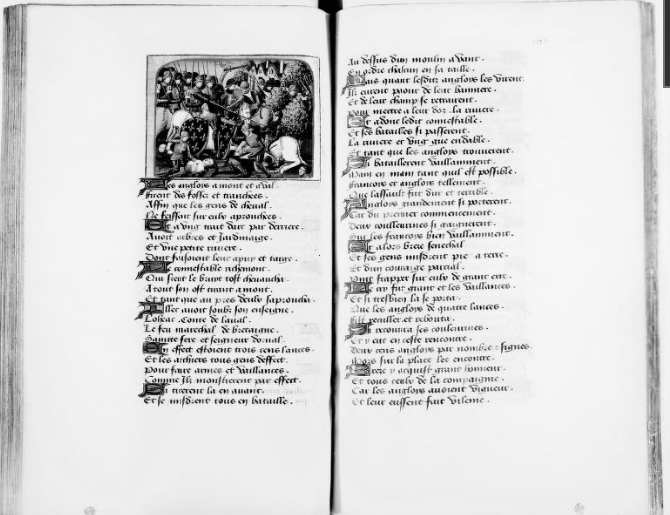 Les angloys amont et aval
firent des fossez et tranchees
Affin que les gens de cheval
Ne feissent sur eulx aprouchees
Et a ung trait darc par derriere
Avoit arbres et jardinaige
Et une petite riviere
Dont faisoient leur apuy et targe
Le connestable richemont
Qui sceut le bruyt tost chevaucha
A tout son ost tirant amont
Et tant que au pres deulx saproucha
Aller avoit soubz son enseigne
Loheac Conte de laval
Le feu mareschal de bretaigne
Saincte severe et seigneur dorval
En effect estoient trois cens lances
Et les archiers tous gens deffect
Pour faire armes et vaillances
Comme ilz monstrerent par effect
Si tirerent la en avant
Et se misdrent tous en bataille
Au dessus dun moulin a vent
En ordre chascun en sa taille
Mais quant lesditz anglois les virent
Ilz eurent paour de leur banniere
Et de leur champ se retrairent
Pour mettre a leur dos la riviere
Et adonc ledit connestable
Et ses batailles si passerent
La riviere et ung gue
Et tant que les anglois trouverent
Si bataillerent vaillamment
Main en main tant quil est possible
francois et anglois tellement
Que lassault fut dur et terrible
Anglois grandement si porterent
Car du premier commencement
Deux coulleurines si gaignerent
Sur les francois bien vaillamment
Et alors breze seneschal
Et ses gens misdrent pie a terre
Et dun couraige parcial
Vont frapper sur eulx de grant erre
Le cry fut grant et les vaillances
Et si tresbien la se porta
Que les anglois de quatre lances
fist reculler et rebouta
Et recouvra ses couleurines
Et y eut en ceste rencontre
Deux cens anglois par nombre signes
Mors sur la place lors encontre
Breze y acquist grant honneur
Et tous ceulx de la compaignie
Car les anglois avoient vigueur
Et leur eussent fait vilenie